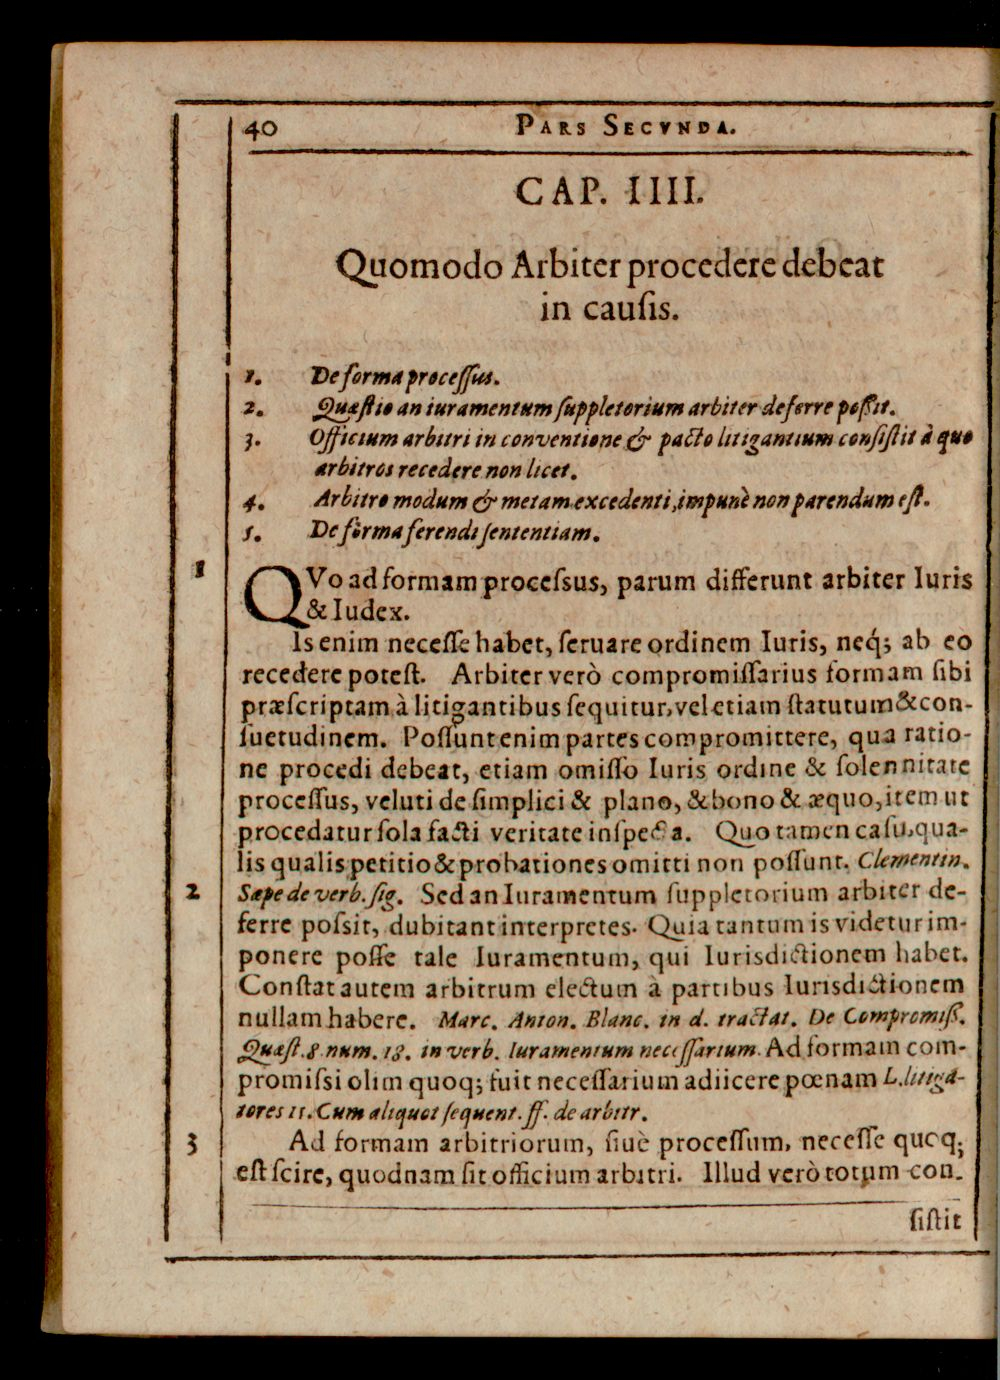 40 PARS SECVNDA.
CAP. IIII.
Quomodo Arbiter procedere debeat
in cauſis.
1. De forma proceſſus.
2. Quæſtio an iuramentum ſuppletorium arbiter deferre poſſit.
3. Officium arbitri in conventione & pacto litigantium conſiſtit à quo
arbitros recedere non licet.
4. Arbitro modum & metam excedenti, impunè non parendum eſt.
5. De forma ferendi ſententiam.
1 QVo ad formam proceſsus, parum differunt arbiter Iuris
& Iudex.
Is enim neceſſe habet, ſeruare ordinem Iuris, neq́; ab eo
recedere poteſt. Arbiter verò compromiſſarius formam ſibi
præſcriptam à litigantibus ſequitur, vel etiam ſtatutum & con-
ſuetudinem. Poſſunt enim partes compromittere, qua ratio-
ne procedi debeat, etiam omiſſo Iuris ordine & ſolennitate
proceſſus, veluti de ſimplici & plano, & bono & æquo, item ut
procedatur ſola facti veritate inſpecta. Quo tamen caſu, qua-
lis qualis petitio & probationes omitti non poſſunt. Clementin.
2 Sæpe de verb. ſig. Sed an Iuramentum ſuppletorium arbiter de-
ferre poſsit, dubitant interpretes. Quia tantum is videtur im-
ponere poſſe tale Iuramentum, qui Iurisdictionem habet.
Conſtat autem arbitrum electum à partibus Iurisdictionem
nullam habere. Marc. Anton. Blanc. in d. tractat. De Compromiſſ.
Quæſt. 8. num. 18. in verb. Iuramentum neceſſarium. Ad formam com-
promiſsi olim quoq; fuit neceſſarium adiicere pœnam L. litiga-
tores 11. Cum aliquot ſequent. ff. de arbitr.
3 Ad formam arbitriorum, ſiuè proceſſum, neceſſe quoq;
eſt ſcire, quodnam ſit officium arbitri. Illud verò totum con-
ſiſtit